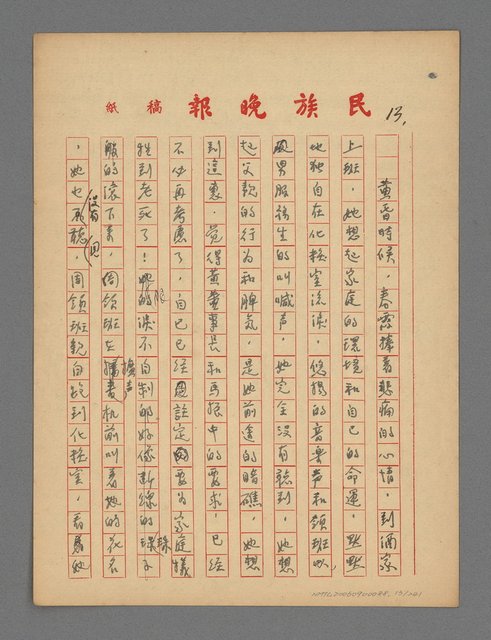 民族晚報 稿紙
13.
黃昏時候,春霞捧着悲痛的心情,到酒家
上班,她想起家庭的環境和自己的命運,默默
地獨自在化粧室流淚,悠揚的音樂声和領班以
及男服務生的叫喊声,她完全没有聽到,她想
起父親的行为和脾氣,是她前途的暗礁,她想
到這裏,觉得黃董事長和馬股中的要求,已經
不必再考慮了,自己已經註定要为家庭犧
牲到老死了!她的眼淚不自制的好像断線的珠子
般的滚下来,周領班在擴声机前叫着她的花名
,她也没有聽見,周領班親自跑到化粧室,看見她
NMTL20060900088, 13/261